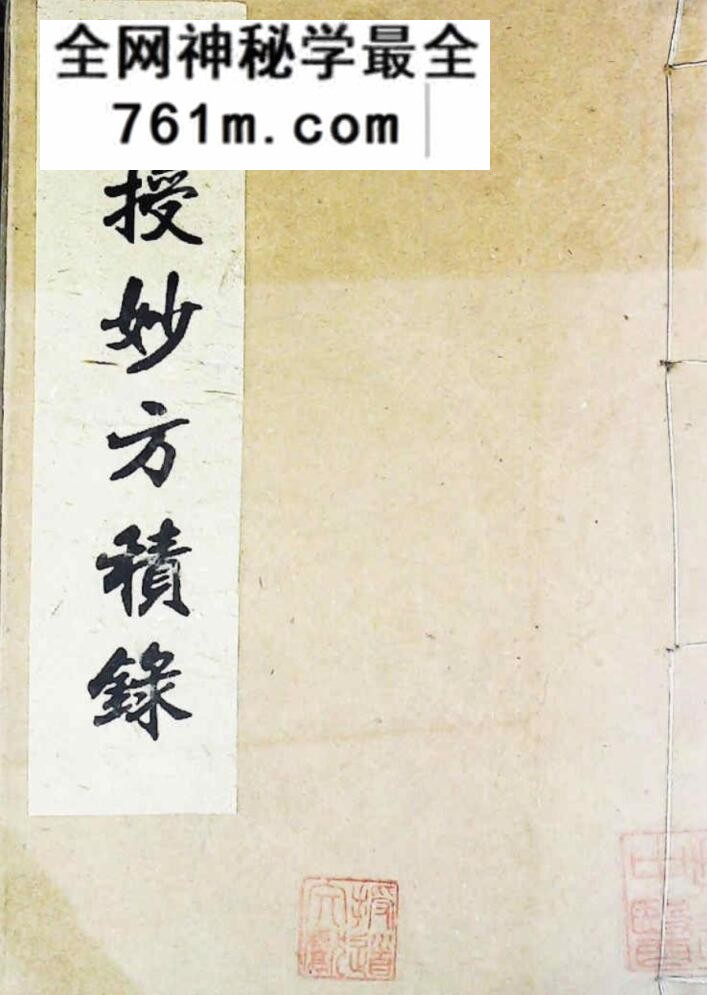 全网神秘学最全
761m.com
授妙方積錄